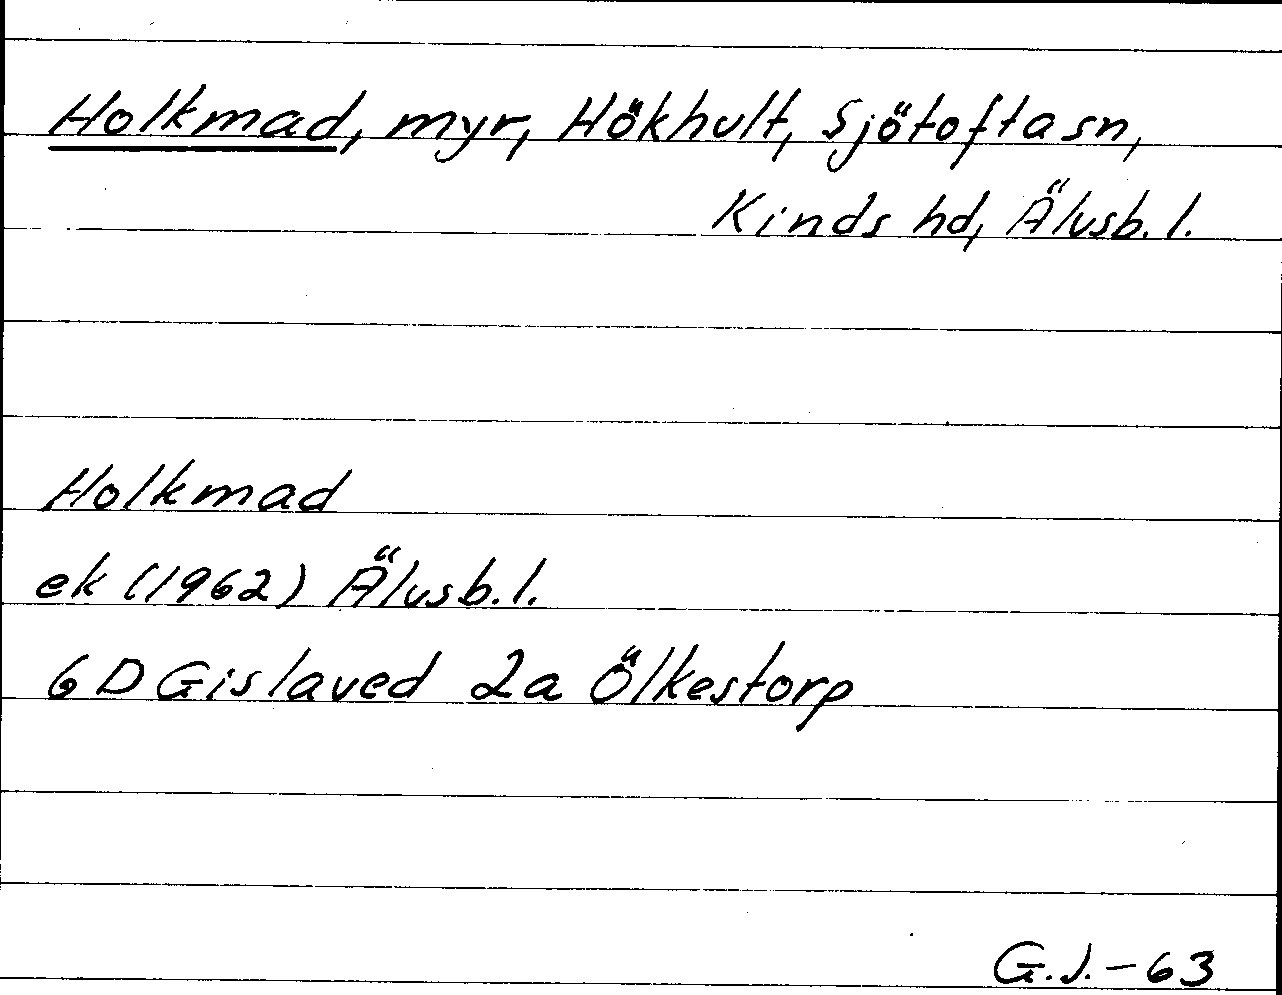 Holkmad, myr, Hökhult, Sjötofta sn,
Kinds hd, Älvsb. l.
Holkmad
ek (1962) Älvsb. l.
6 D Gislaved 2a Ölkestorp
G.J. - 63